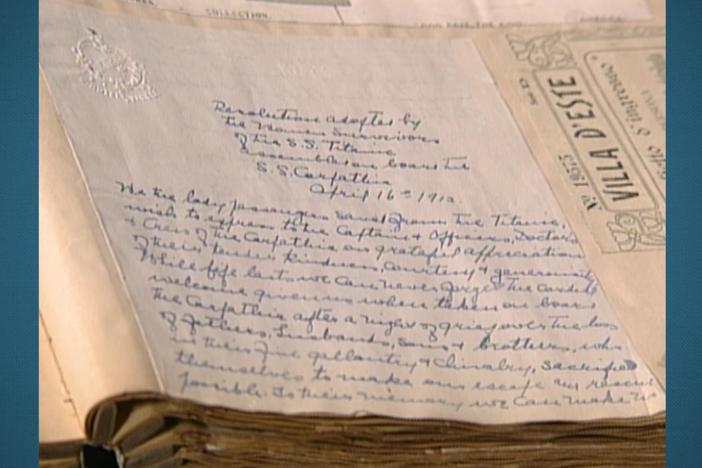 COLLECTION.
Resolution adopted by
the Women Survivors
of the S.S. Titanic
assembled on board the
S.S. Carpathia
April 16th 1912.
We the lady passengers saved from the Titanic,
wish to express to the Captain & Officers, Doctors
& Crew of the Carpathia our grateful appreciation
of their tender kindness, courtesy & generosity
While life lasts we can never forget the cordial
welcome given us when taken on board
the Carpathia after a night of grief over the loss
of fathers, husbands, sons & brothers, who
in their fine gallantry & chivalry, sacrificed
themselves to make our escape and rescue
possible. To their memory we can make
VILLA D'ESTE
No 18575